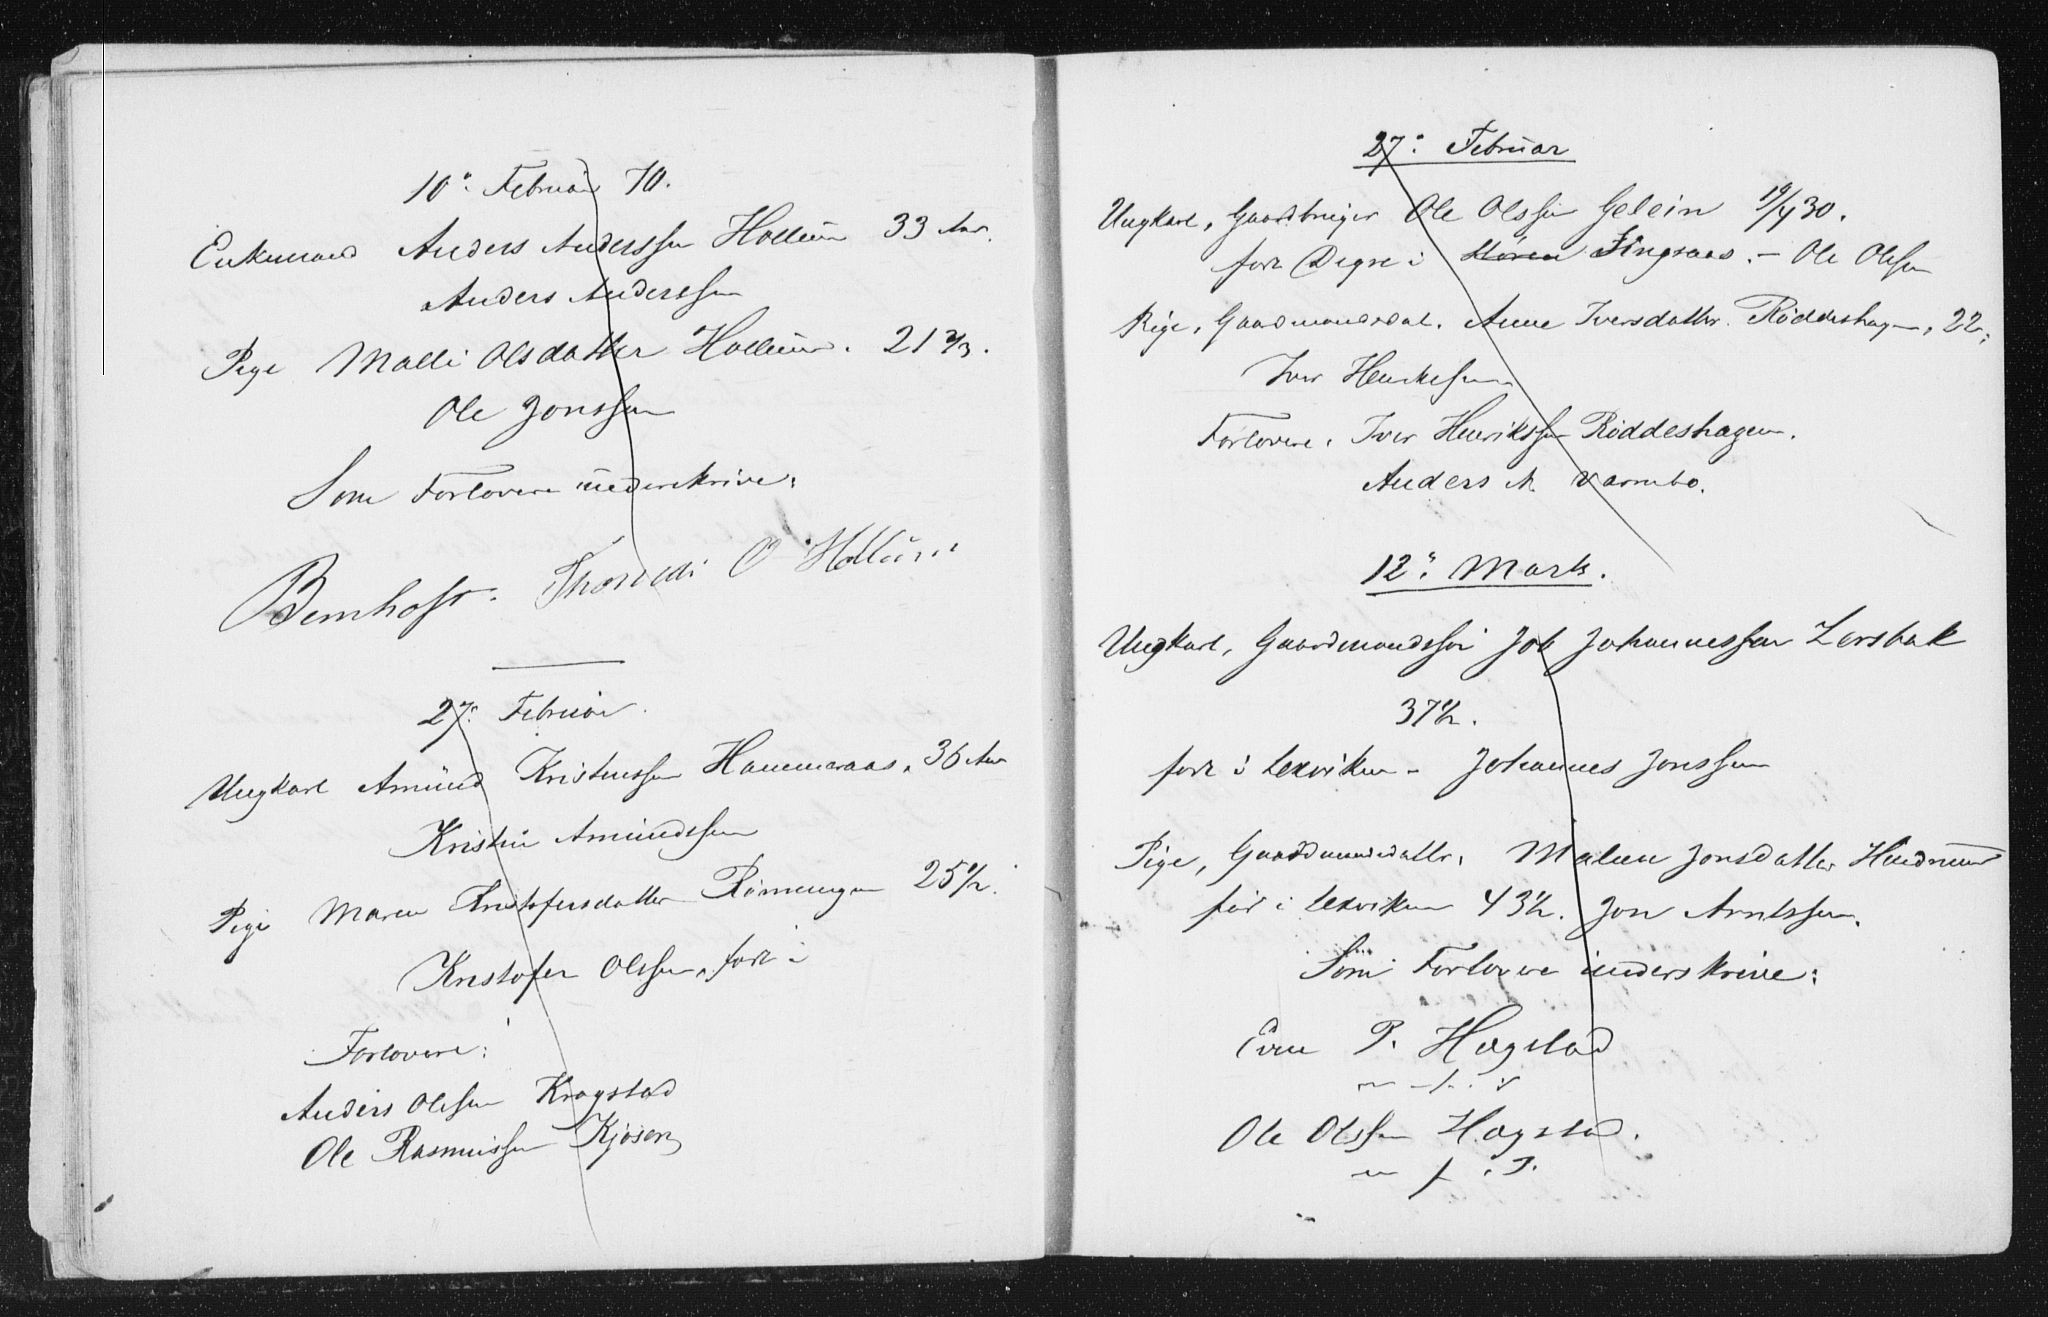 10de Februar 70.
Enkemand Anders Anderssen Hollum 33 Aar.
Anders Anderssen
Pige Malli Olsdatter Hollum. 21 2/3.
Ole Jonssen
Som Forlovere underskrive:
Bernhoft. O Hollum
27de Februar.
Ungkarl Amund Kristenssen Hammeraas, 36 Aar
Kristen Amundssen
Pige Maren Kristofersdatter 25 1/2.
Kristofer Olssen, født i
Forlovere:
Anders Olssen Krogstad
Ole Rasmussen Kjøsen
27de Februar
Ungkarl, Gaardbruger Ole Olssen Gelein 19/4 30.
født Digre i Støren Singsaas. – Ole Olsen
Pige, Gaardmandsdat. Anne Iversdatter Røddeshagen, 22,
Iver Henriksen
Forlovere. Iver Henrikssen Røddeshagen.
Anders A. Varmbo.
12de Marts.
Ungkarl, Gaardmandssøn Job Johannessen Lersbak
37 1/2.
født i Lexviken – Johannes Jonssen
Pige, Gaardmandsdatter, Malen Jonsdatter
fød i Lexviken 43 1/2. Jon Arntssen.
Som Forlovere underskrive:
Even P. Hagstad
m. f. P.
Ole Olssen Hagstad.
m. f. P.